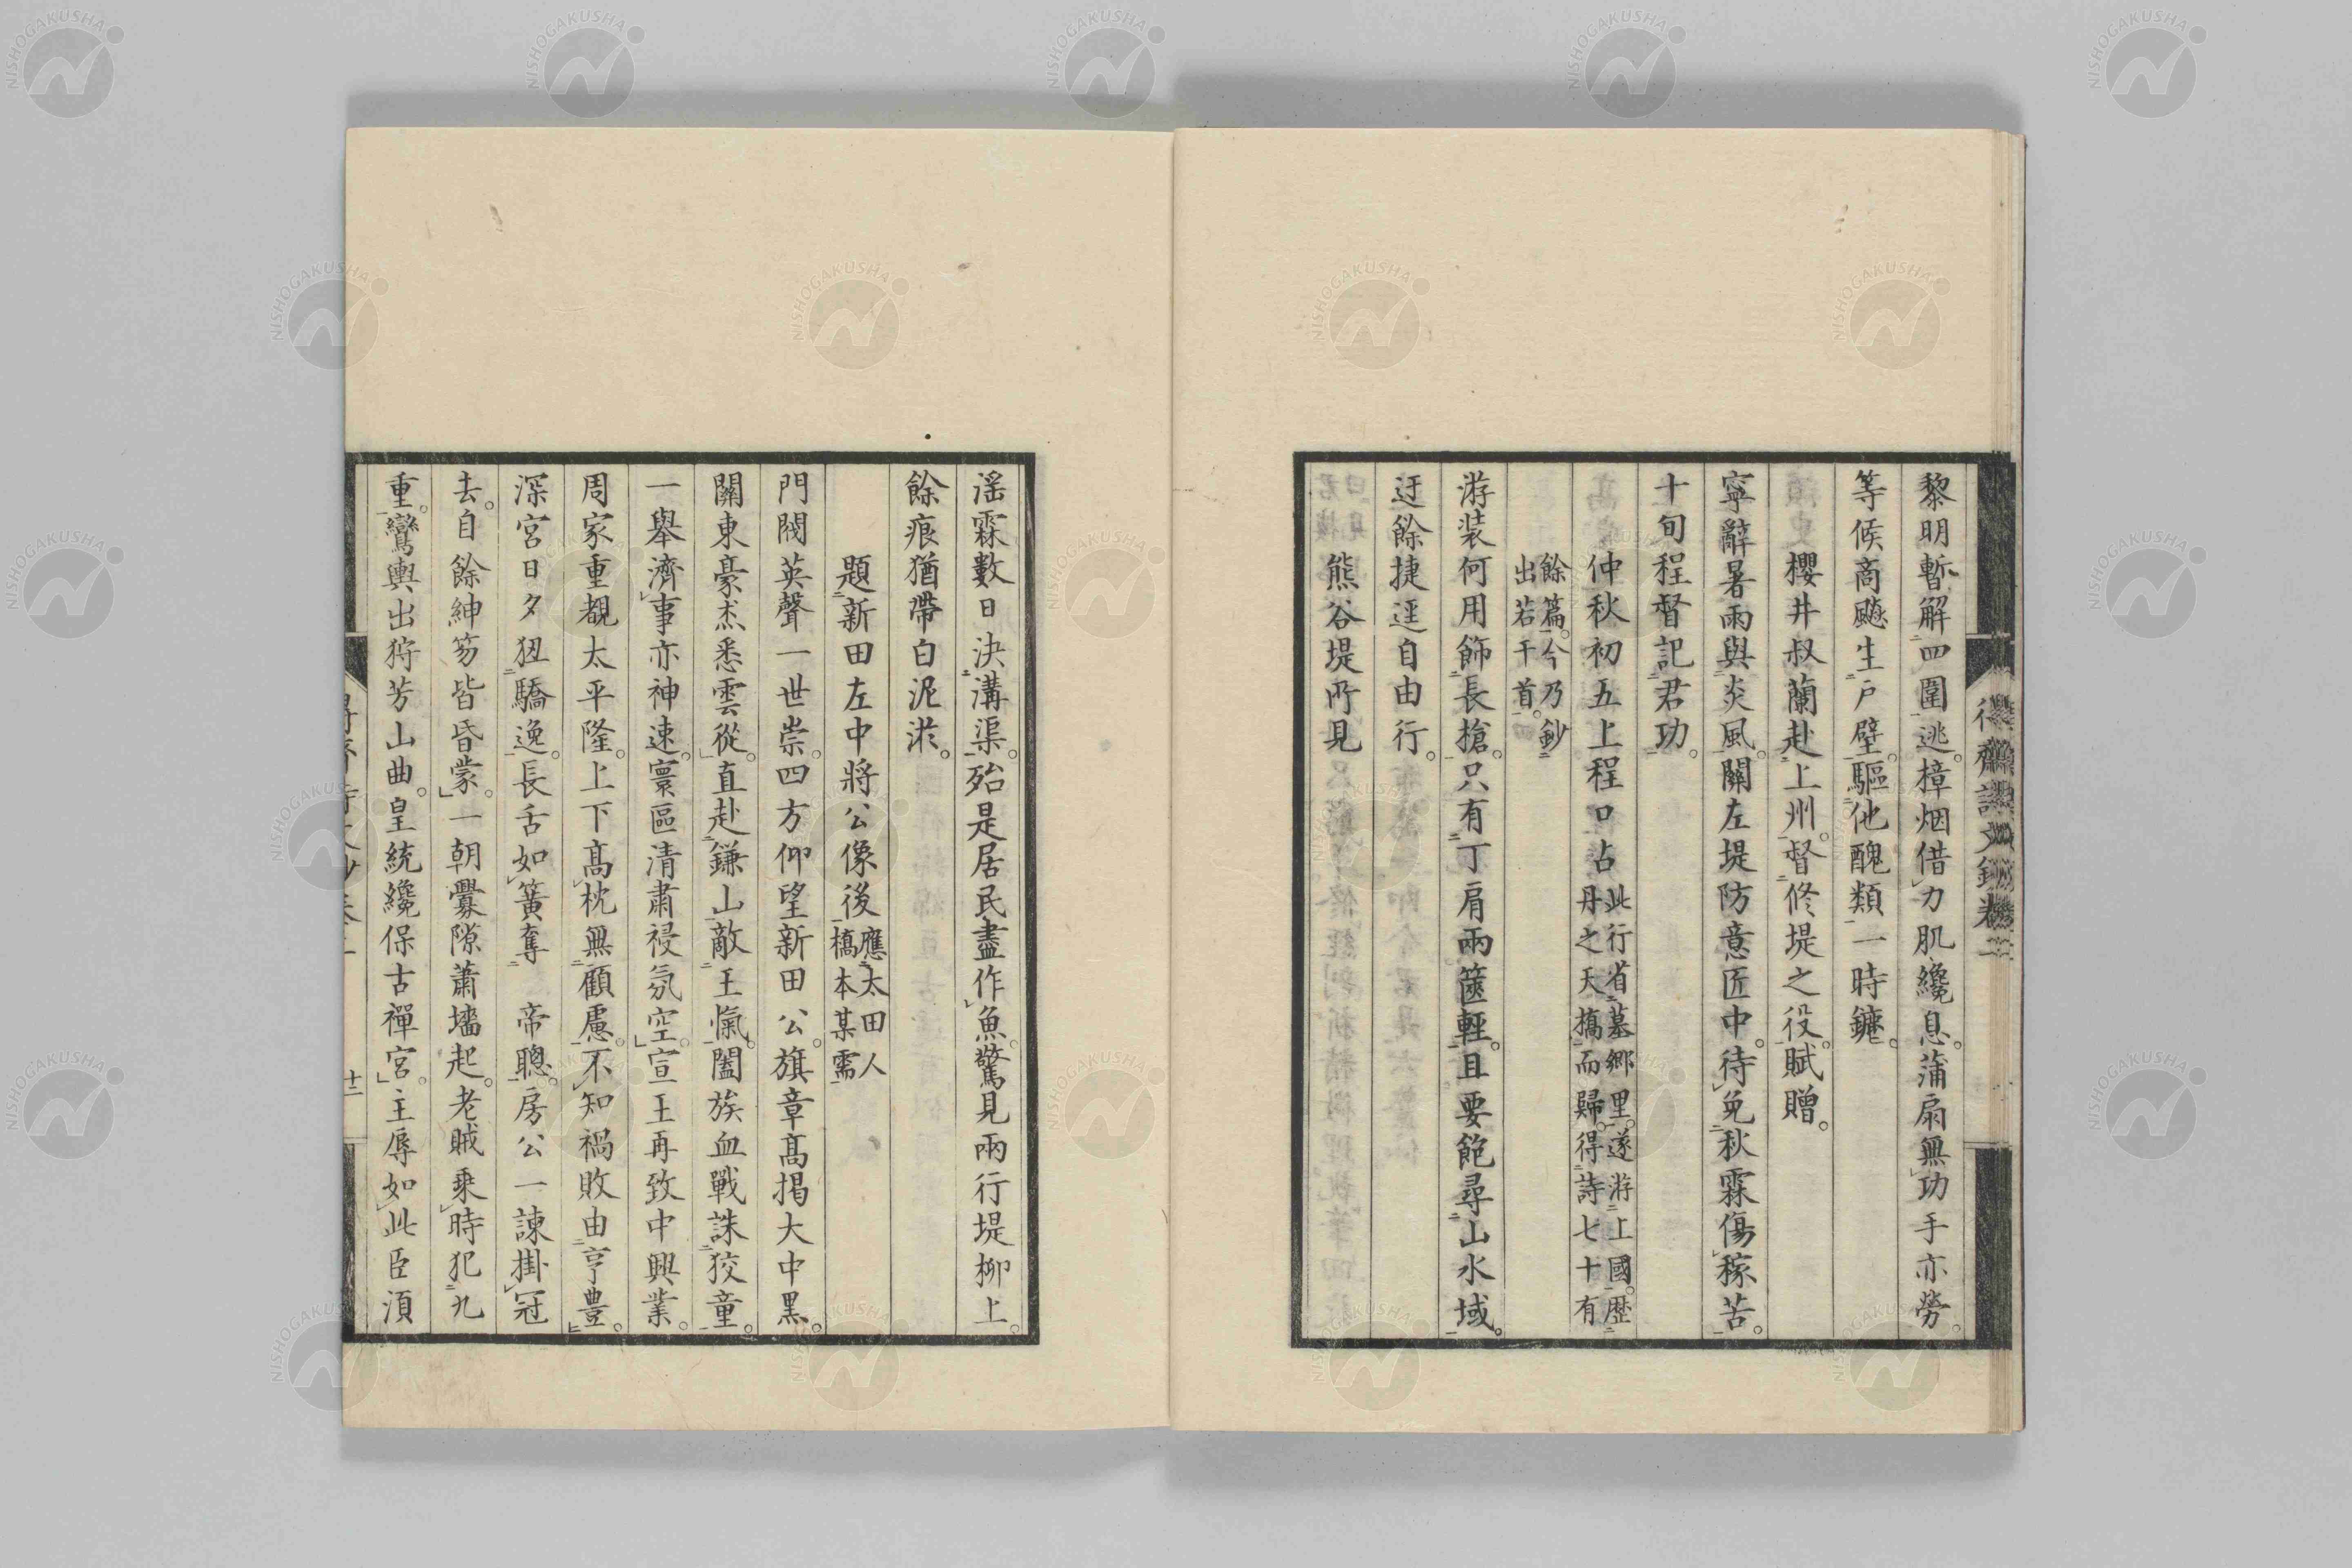 黎明暫解四圍逃。樟烟借力肌纔息。蒲扇無功手亦勞。
等候商飈生戶壁。驅他醜類一時鏖。
櫻井叔蘭赴上州。督修堤之役。賦贈。
寧辭暑雨與炎風。關左堤防意匠中。待免秋霖傷稼苦。
十旬程督記君功。
仲秋初五上程口占
此行省墓鄉里。遂游上國。歷
丹之天橋而歸。得詩七十有
餘篇。今乃鈔
出若干首。
游裝何用飾長槍。只有丁肩兩篋輕。且要飽尋山水域。
迂餘捷逕自由行。
熊谷堤所見
淫霖數日決溝渠。殆是居民盡作魚。驚見兩行堤柳上。
餘痕猶帶白泥淤。
題新田左中將公像後
應太田人
橋本某需
門閥英聲一世崇。四方仰望新田公。旗章高揭大中黑。
關東豪杰悉雲從。直赴鎌山敵王愾。闔族血戰誅狡童。
一舉濟事亦神速。寰區清肅祲氛空。宣王再致中興業。
周家重覩太平隆。上下高枕無顧慮。不知禍敗由亨豊。
深宮日夕狃驕逸。長舌如簧奪 帝聰。房公一諫掛冠
去。自餘紳笏皆昏蒙。一朝釁隙蕭墻起。老賊乘時犯九
重。鸞輿出狩芳山曲。皇統纔保古禪宮。主辱如此臣須
十二
NISHOGAKUSHA